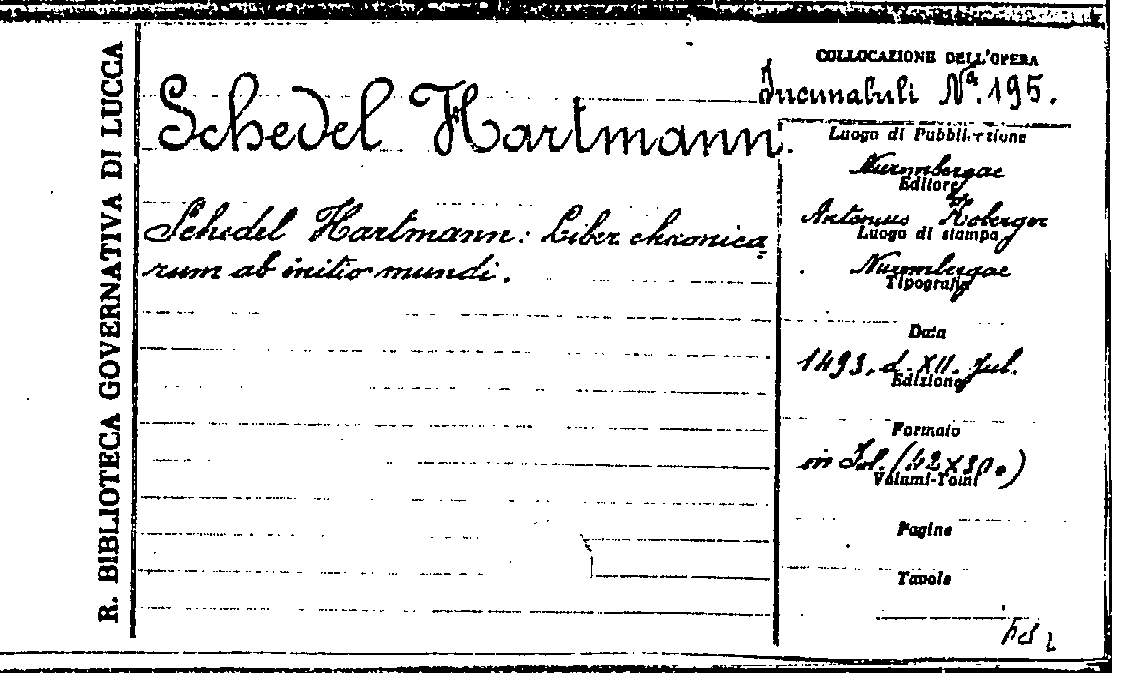 R. BIBLIOTECA GOVERNATIVA DI LUCCA
COLLOCAZIONE DELL'OPERA
Incunabuli Nº. 195.
Schedel Hartmann.
Schedel Hartmann: Liber chronica
rum ab initio mundi.
Luogo di Pubblicazione
Nurembergae
Editore
Antonius Koberger
Luogo di stampa
Nurembergae
Tipografia
Data
1493, d. XII. Jul.
Edizione
Formato
in Fol. (42×30)
Volumi-Tomi
Pagine
Tavole